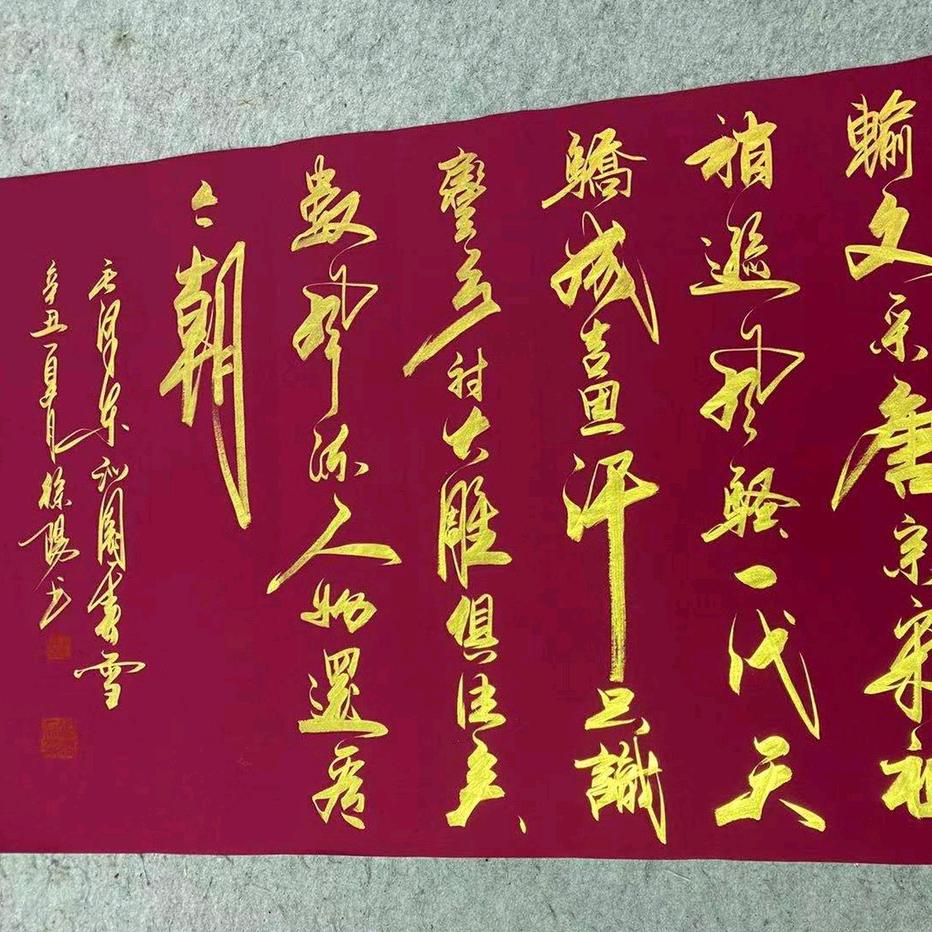 輸文采唐宗宋祖
稍遜風騷一代天
驕成吉思汗只識
彎弓射大雕俱往矣
數風流人物還看
今朝
毛澤东沁園春雪
辛丑夏月徐陽书